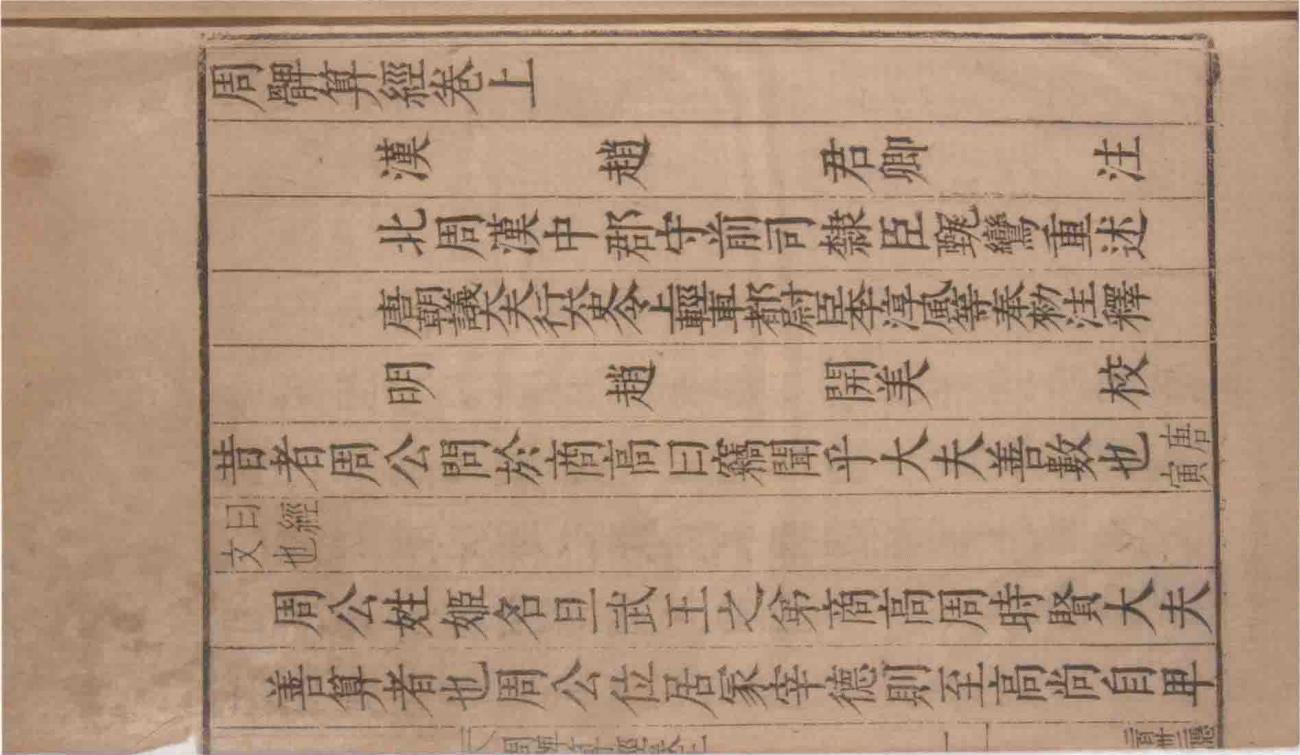 周髀算經卷上
漢 趙 君卿 注
北周漢中郡守前司隸臣甄鸞重述
唐朝議大夫行太史令上輕車都尉臣李淳風等奉勅注釋
明 趙 開美 校
昔者周公問於商高曰竊聞乎大夫善數也唐寅
曰經文也
周公姓姬名旦武王之第商高周時賢大夫
善算者也周公位居冢宰德則至高尚自卑
周髀算經卷上 一